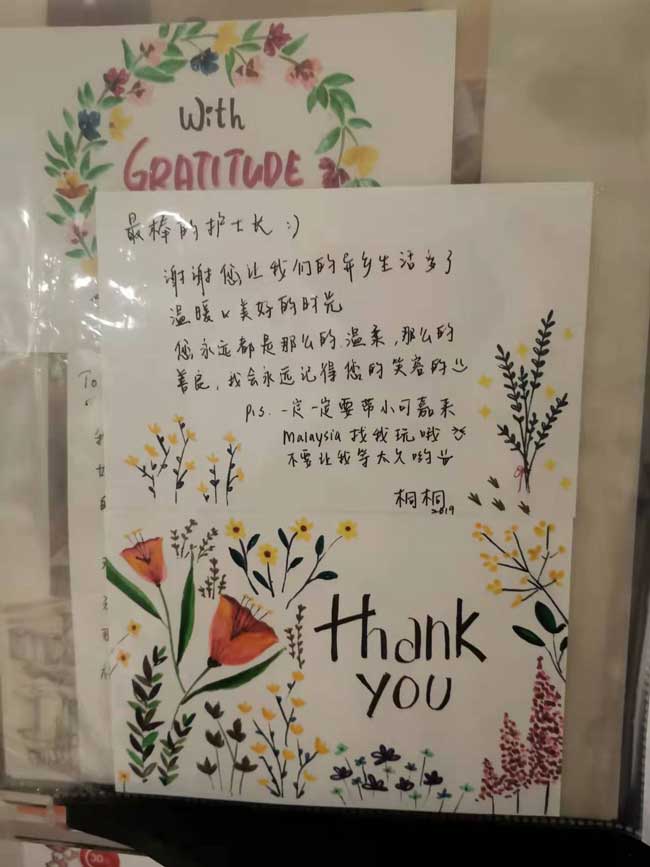 With
GRATITUDE
最棒的护士长 :)
谢谢您让我们的异乡生活多了
温暖 & 美好的时光
您永远都是那么的温柔，那么的
善良，我会永远记得您的笑容的
p.s. 一定一定要带小可嘉来
Malaysia 找我玩哦
不要让我等太久哟
桐桐
2019
To
thank
you